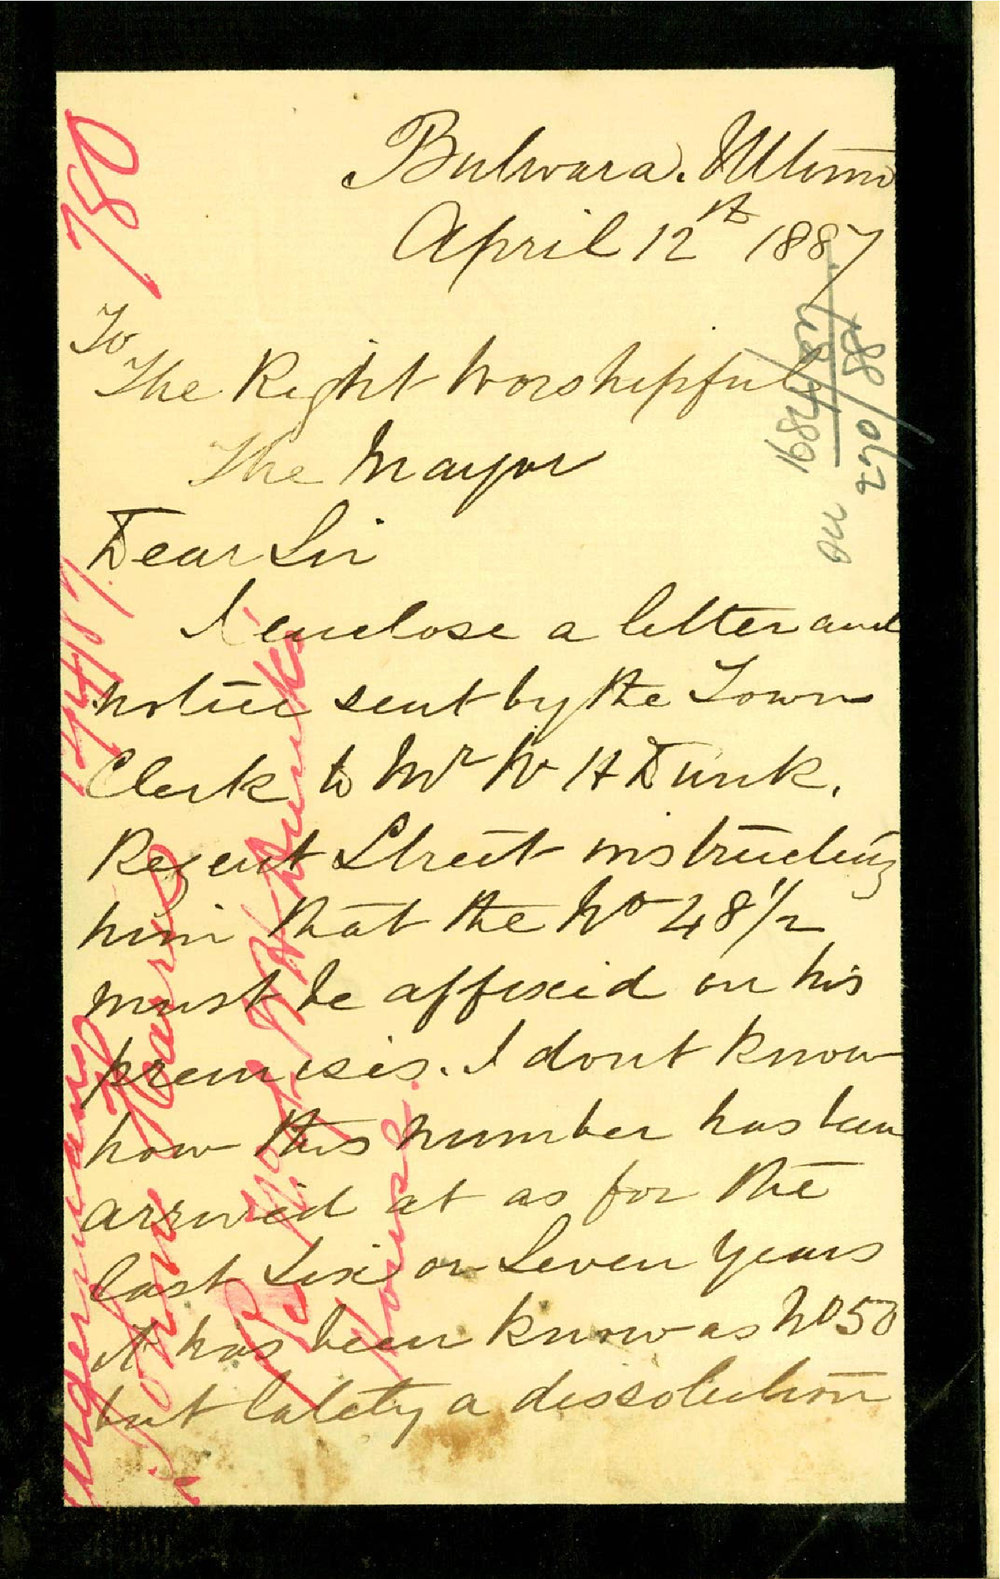 Bulwara. Ultimo
April 12th 1887
To
The Right Worshipful
The Mayor
Dear Sir
I enclose a letter and
notice sent by the Town
Clerk to Mr W H Dunk.
Regent Street instructing
him that the No 48 1/2
must be affixed on his
premises. I dont know
how this number has been
arrived at as for the
last Six or Seven Years
it has been know as No 50
but lately a dissolution
780
14.4.87.
Alderman
John Harris
Re No of W H Dunk's
House.
1884/87
188/